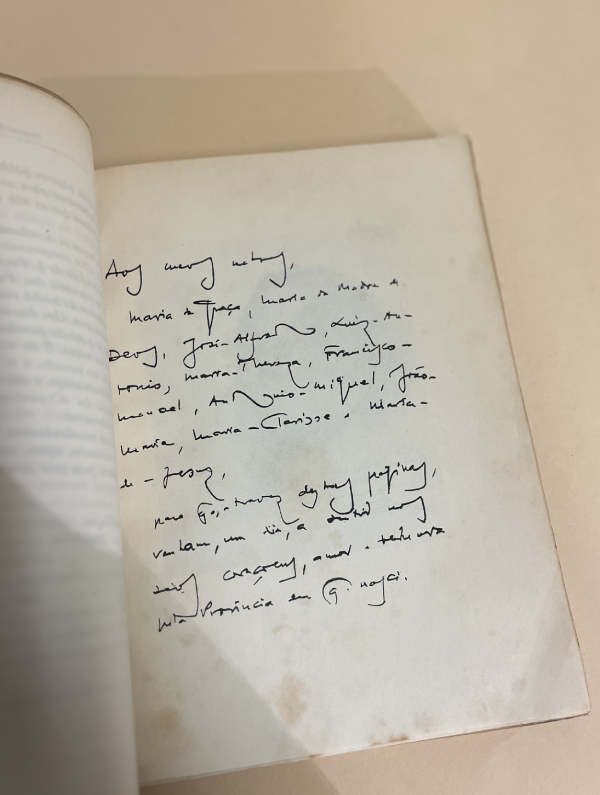 Aos meus netos,
Maria da Graça, Maria da Madre de
Deus, José-Alfredo, Luiz-An-
tonio, Maria-Thereza, Francisco-
manuel, Antonio-Miguel, João-
Maria, Maria-Clarisse e Maria-
de-Jesus,
para q., a travez destas paginas,
venham, um dia, a sentir nos
seus corações, amor e ternura
pela Província em q. nasci.